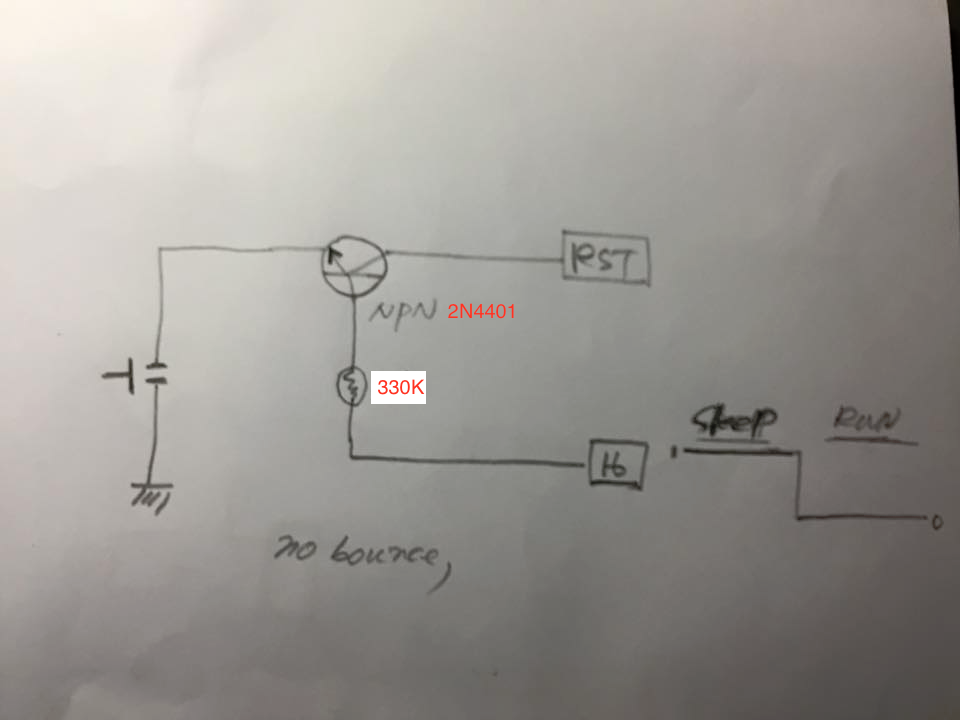 RST
NPN 2N4401
330K
Sleep RUN
16
1
0
no bounce,